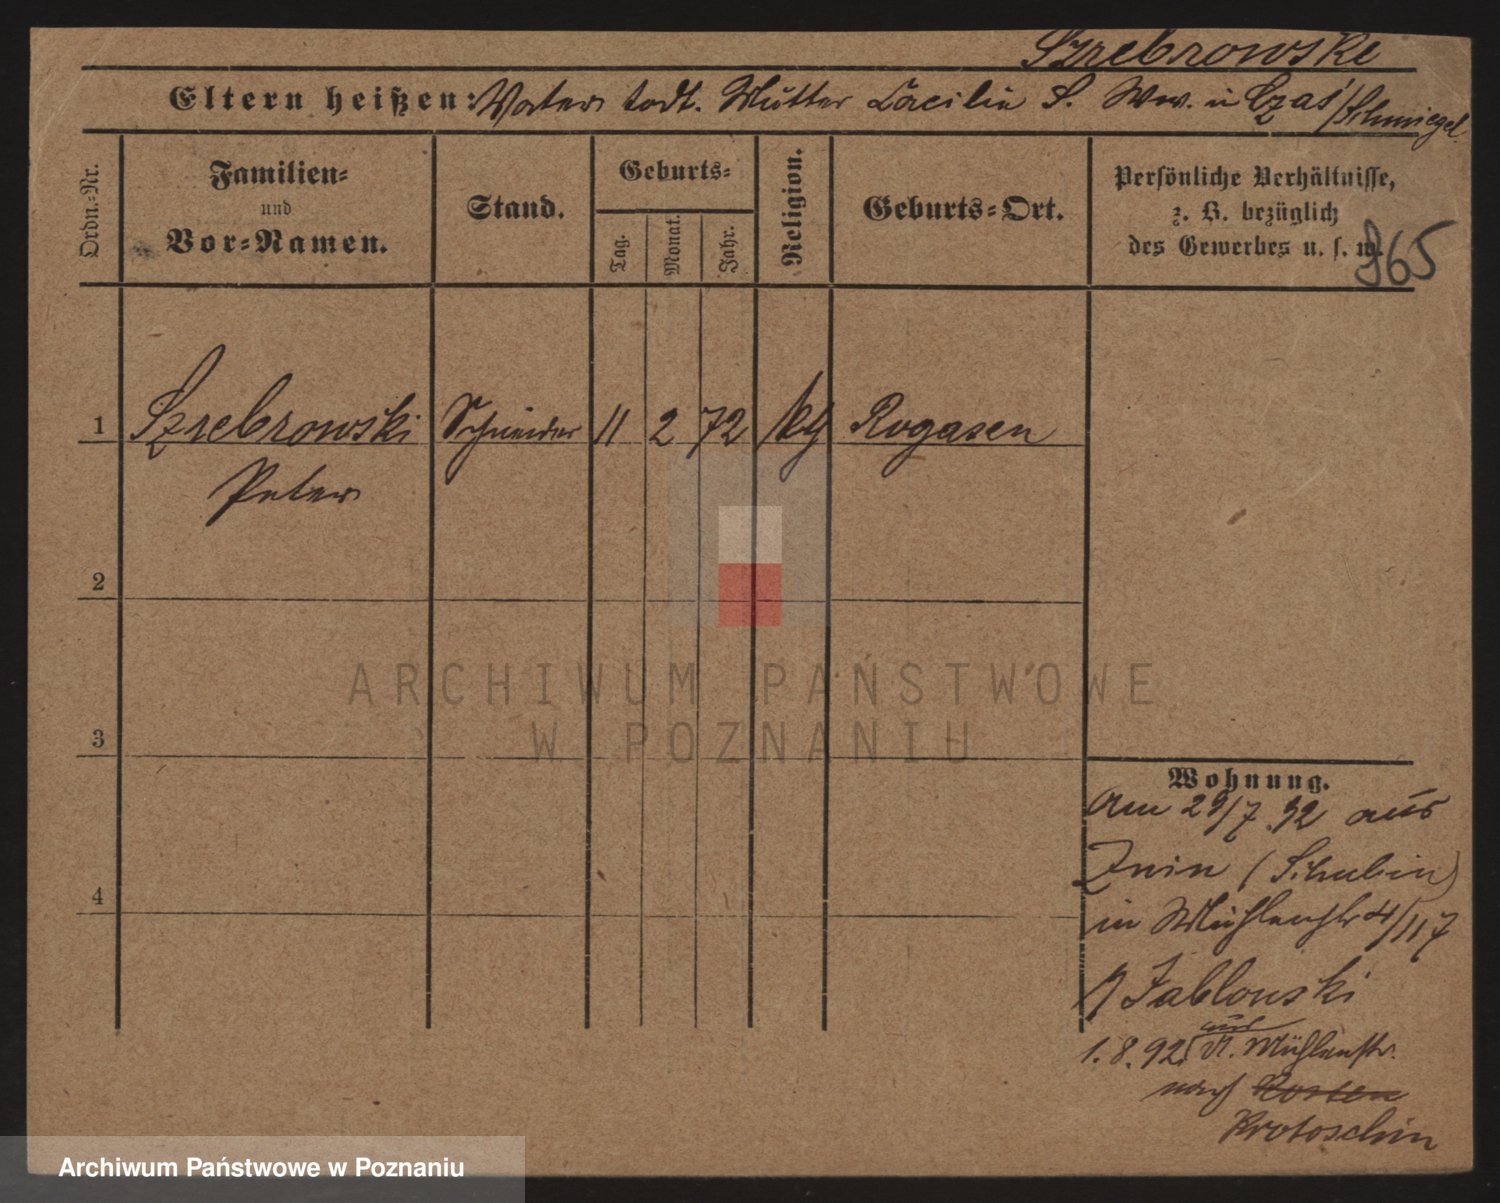 Szrebrowski
Eltern heißen: Vater todt. Mutter Cäcilie S. Ww. in Czas/Schmiegel
Ordn.-Nr.
Familien-
und
Vor-Namen.
Stand.
Geburts-
Tag.
Monat.
Jahr.
Religion.
Geburts-Ort.
Persönliche Verhältnisse,
z. B. bezüglich
des Gewerbes u. s. w.
965
1 Szrebrowski Schneider 11 2 72 kth Rogasen
Peter
2
3
4
Wohnung.
Am 29/7 92 aus
Znin (Schubin)
in Mühlenstr 4/II 7
Jablonski
1.8.92 aus Mühlenstr.
nach Kosten
Krotoschin
ARCHIWUM PAŃSTWOWE
W POZNANIU
Archiwum Państwowe w Poznaniu